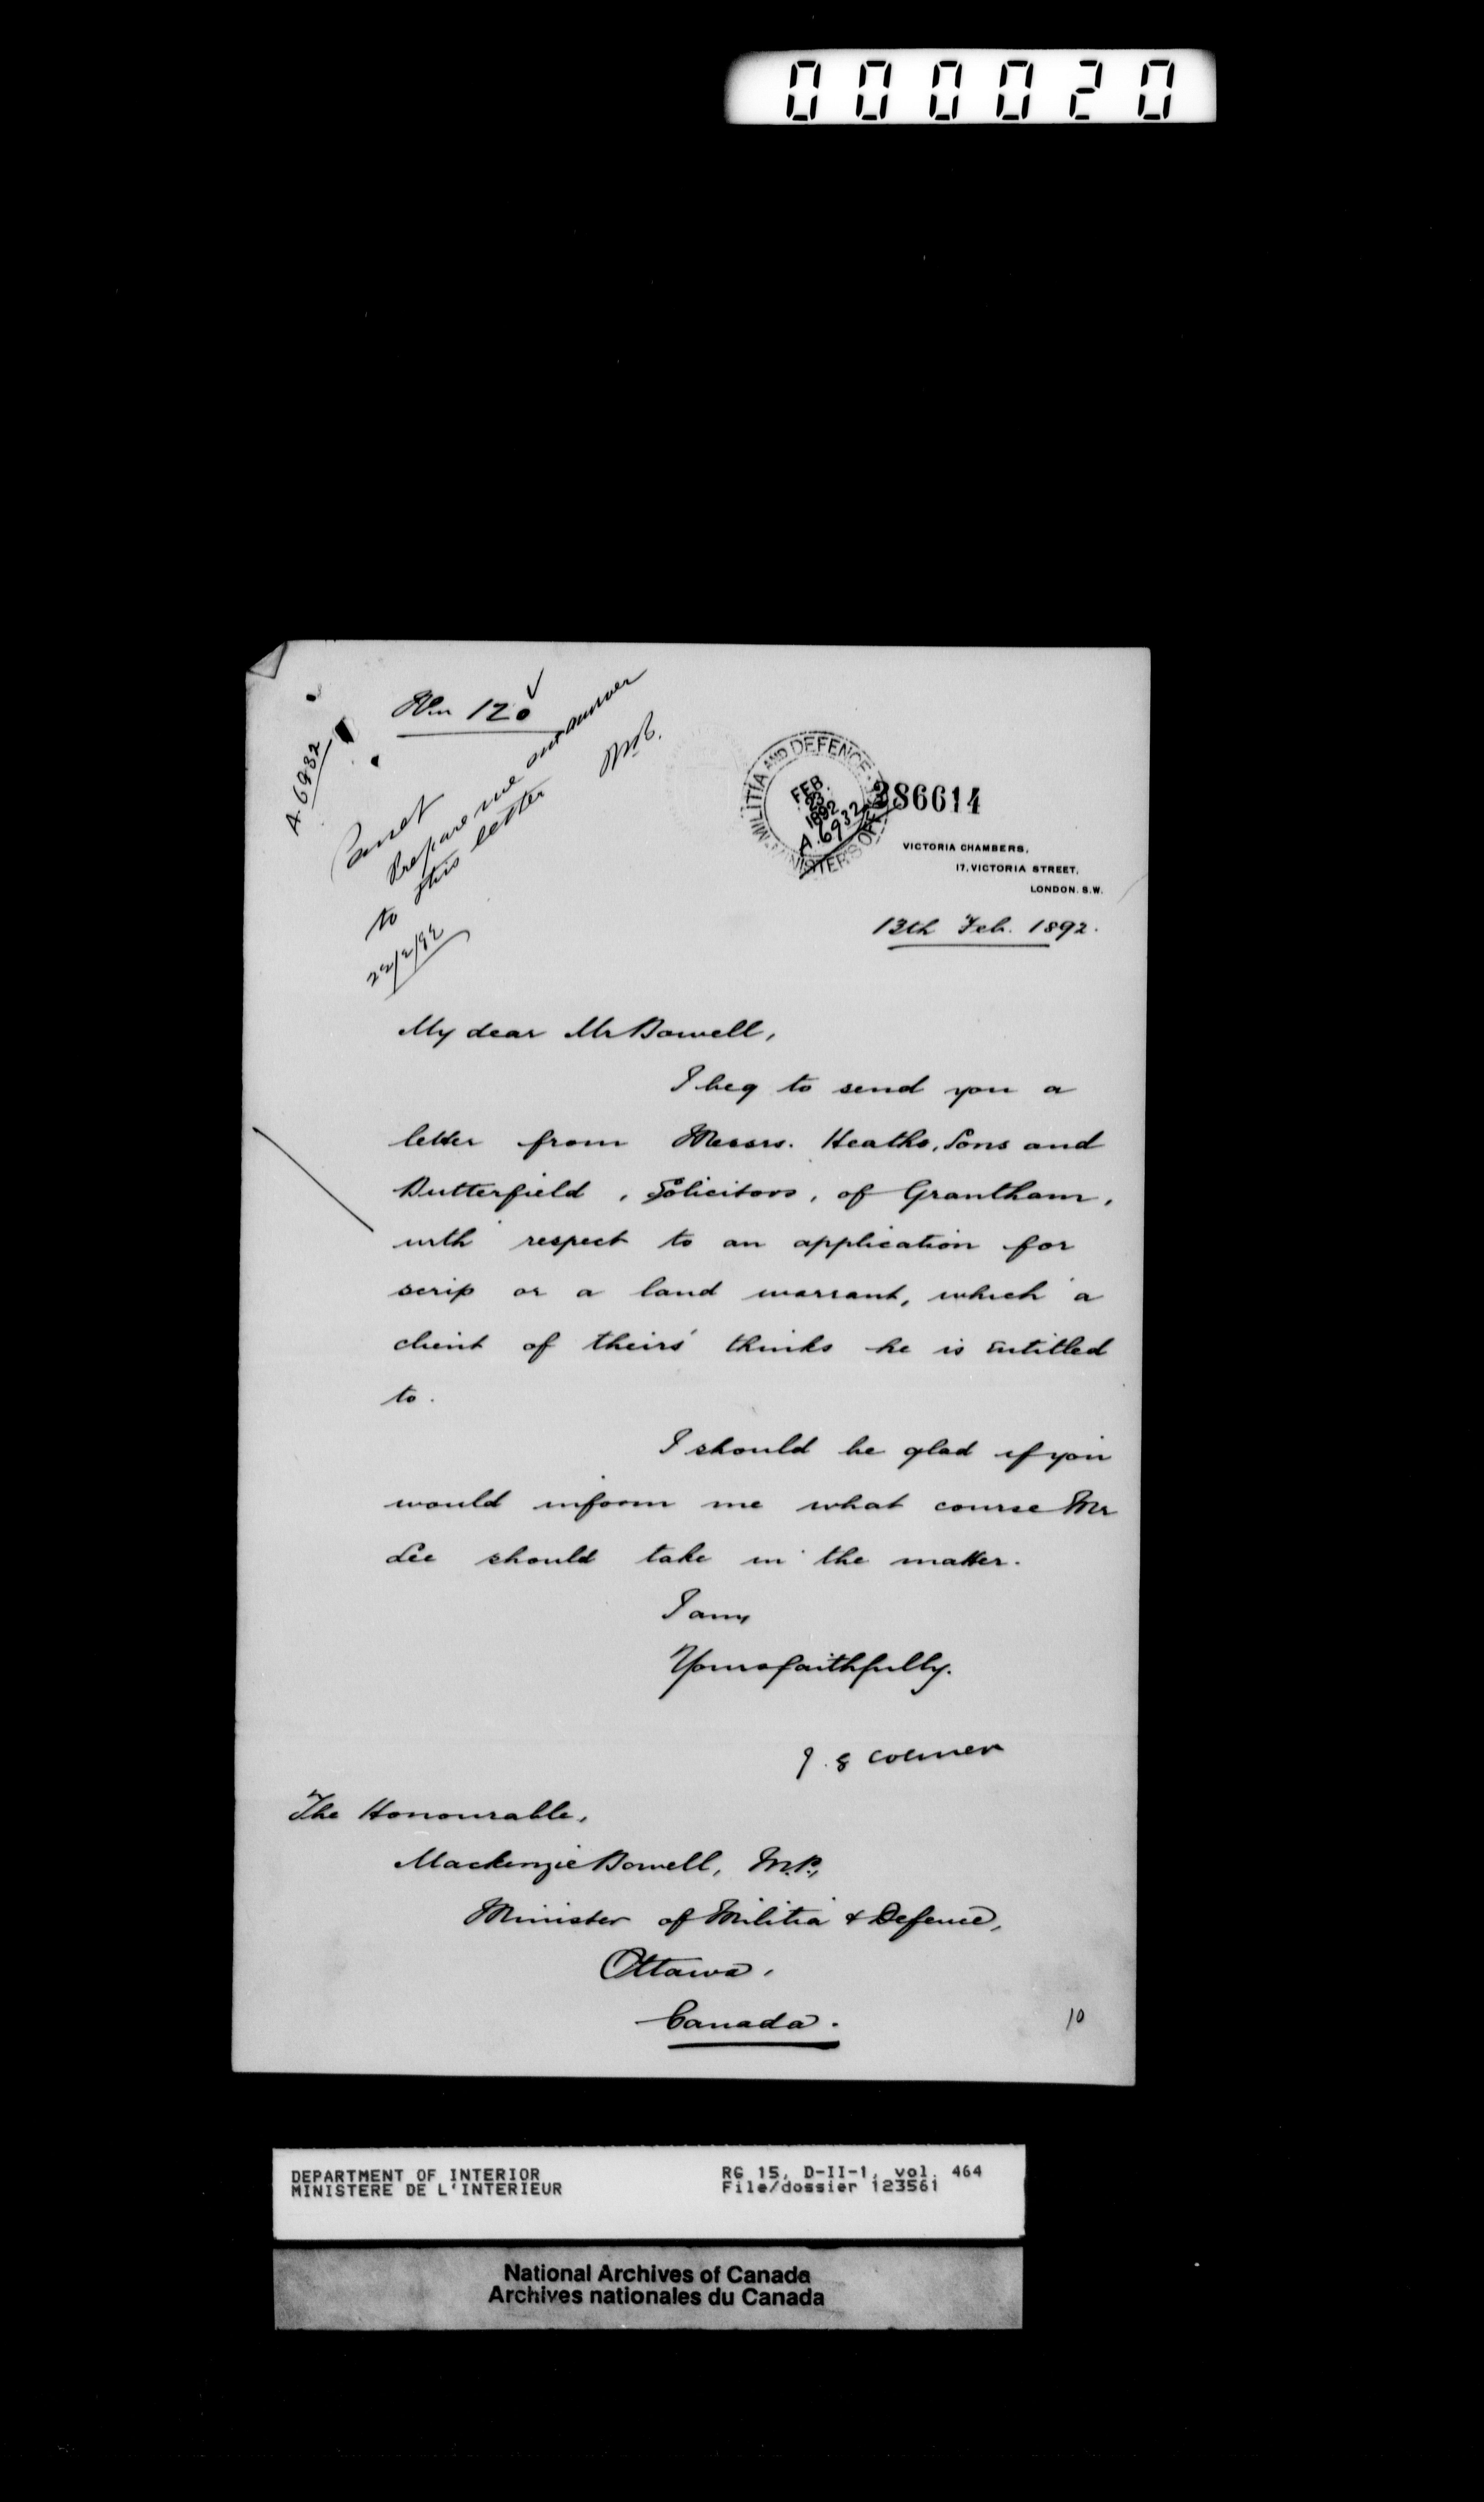 000020
Wm 120
A 6932
Panet
Prepare me an answer
to this letter
MB.
22/2/92
MILITIA AND DEFENCE
MINISTER'S OFFICE
FEB
23
1892
A.6932
386614
VICTORIA CHAMBERS,
17, VICTORIA STREET,
LONDON. S.W.
13th Feb. 1892.
My dear Mr Bowell,
I beg to send you a
letter from Messrs. Heaths, Sons and
Butterfield, Solicitors, of Grantham,
with respect to an application for
scrip or a land warrant, which a
client of theirs thinks he is entitled
to.
I should be glad if you
would inform me what course Mr
Lee should take in the matter.
I am,
Yours faithfully.
J. G Colmer
The Honourable,
Mackenzie Bowell, M.P.,
Minister of Militia & Defence,
Ottawa,
Canada.
10
DEPARTMENT OF INTERIOR
MINISTERE DE L'INTERIEUR
RG 15, D-II-1, vol. 464
File/dossier 123561
National Archives of Canada
Archives nationales du Canada